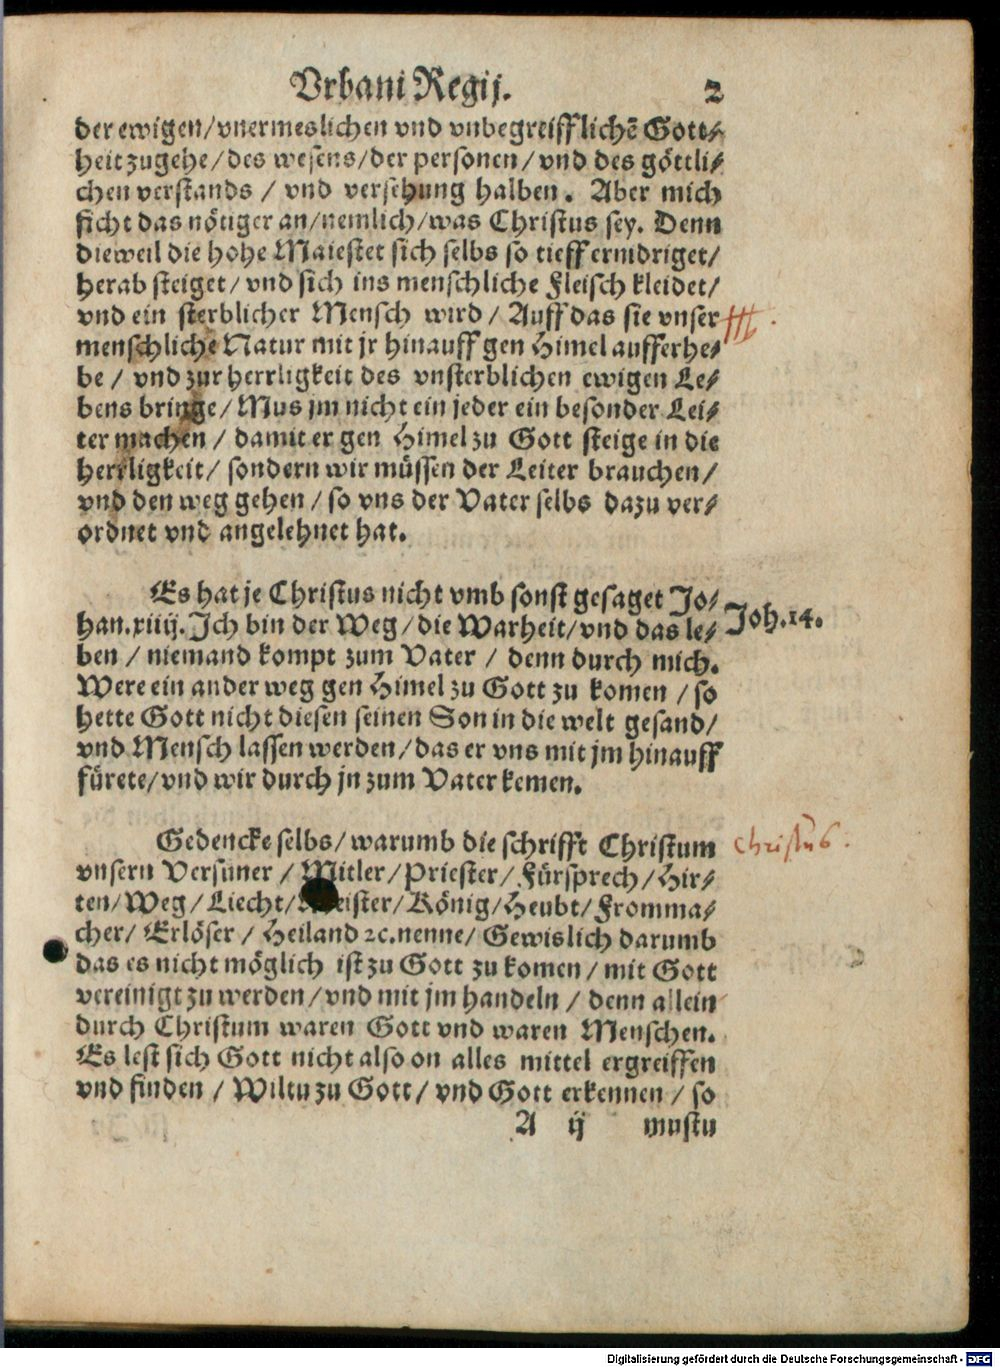 Vrbani Regij. 2
der ewigen/vnermeslichen vnd vnbegreifflichẽ Gott⸗
heit zugehe/des wesens/der personen/vnd des göttli⸗
chen verstands / vnd versehung halben. Aber mich
ficht das nötiger an/nemlich/was Christus sey. Denn
dieweil die hohe Maiestet sich selbs so tieff ernidriget/
herab steiget/vnd sich ins menschliche Fleisch kleidet/
vnd ein sterblicher Mensch wird / Auff das sie vnser
menschliche Natur mit jr hinauff gen Himel aufferhe⸗
be / vnd zur herrligkeit des vnsterblichen ewigen Le⸗
bens bringe/Mus jm nicht ein jeder ein besonder Lei⸗
ter machen / damit er gen Himel zu Gott steige in die
herrligkeit/ sondern wir müssen der Leiter brauchen/
vnd den weg gehen / so vns der Vater selbs dazu ver⸗
ordnet vnd angelehnet hat.
Es hat je Christus nicht vmb sonst gesaget Jo⸗
Joh.14.
han.xiiij. Ich bin der Weg/die Warheit/vnd das le⸗
ben / niemand kompt zum Vater / denn durch mich.
Were ein ander weg gen Himel zu Gott zu komen / so
hette Gott nicht diesen seinen Son in die welt gesand/
vnd Mensch lassen werden/das er vns mit jm hinauff
fürete/vnd wir durch jn zum Vater kemen.
Gedencke selbs/warumb die schrifft Christum
Christus.
vnsern Versüner / Mitler/Priester/Fürsprech/Hir⸗
ten/Weg/Liecht/Meister/König/Heubt/Fromma⸗
cher/ Erlöser / Heiland ꝛc.nenne/Gewislich darumb
das es nicht möglich ist zu Gott zu komen/mit Gott
vereinigt zu werden/vnd mit jm handeln / denn allein
durch Christum waren Gott vnd waren Menschen.
Es lest sich Gott nicht also on alles mittel ergreiffen
vnd finden / Wiltu zu Gott/vnd Gott erkennen / so
A ij mustu
Digitalisierung gefördert durch die Deutsche Forschungsgemeinschaft - DFG